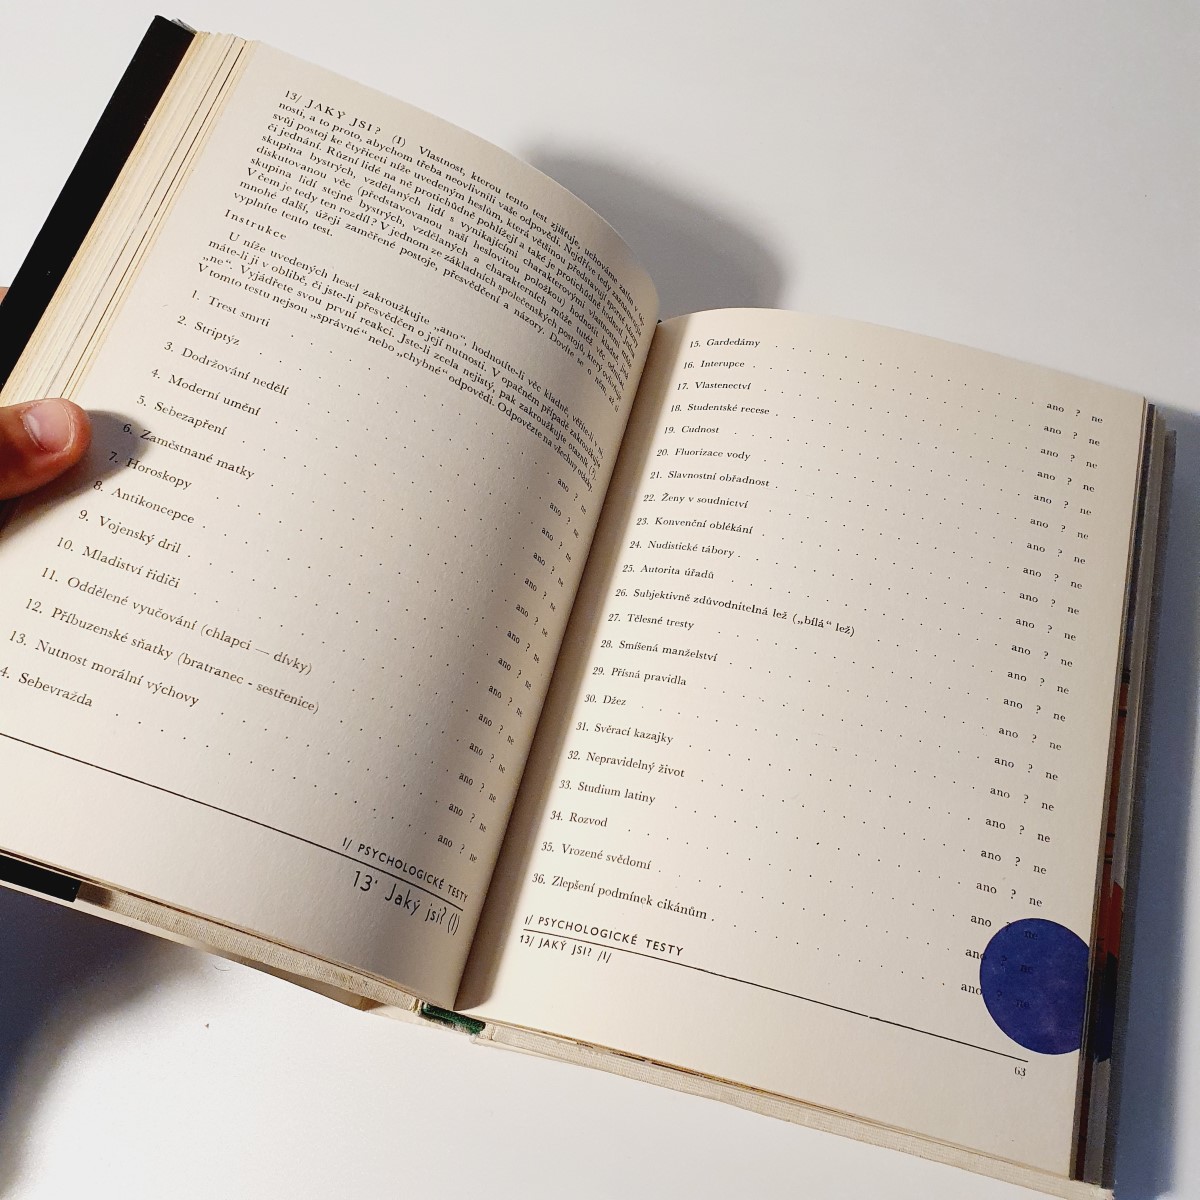 13/ JAKÝ JSI? (I) Vlastnost, kterou tento test zjišťuje, uchováme zatím v taj-
nosti, a to proto, abychom třeba neovlivnili vaše odpovědi. Nejdříve tedy zaznamenejte
svůj postoj ke čtyřiceti níže uvedeným heslům, která většinou představují sporné názory
či jednání. Různí lidé na ně protichůdně pohlížejí a také je protichůdně
skupina bystrých, vzdělaných lidí s vynikajícími charakterovými vlastnostmi
diskutovanou věc (představovanou naší heslovitou položkou) hodnotit kladně, jiná
skupina lidí stejně bystrých, vzdělaných a charakterních může tutéž věc odmítat.
V čem je tedy ten rozdíl? V jednom ze základních společenských postojů, který ovlivňuje
mnohé další, úžeji zaměřené postoje, přesvědčení a názory. Dovíte se o něm, až si
vyplníte tento test.
Instrukce
U níže uvedených hesel zakroužkujte „ano“, hodnotíte-li věc kladně, věříte-li v ni,
máte-li ji v oblibě, či jste-li přesvědčen o její nutnosti. V opačném případě zakroužkujte
„ne“. Vyjádřete svou první reakci. Jste-li zcela nejistý, pak zakroužkujte otazník (?).
V tomto testu nejsou „správné“ nebo „chybné“ odpovědi. Odpovězte na všechny otázky.
1. Trest smrti . . . ano ? ne
2. Striptýz . . . ano ? ne
3. Dodržování nedělí . . . ano ? ne
4. Moderní umění . . . ano ? ne
5. Sebezapření . . . ano ? ne
6. Zaměstnané matky . . . ano ? ne
7. Horoskopy . . . ano ? ne
8. Antikoncepce . . . ano ? ne
9. Vojenský dril . . . ano ? ne
10. Mladiství řidiči . . . ano ? ne
11. Oddělené vyučování (chlapci — dívky) . . . ano ? ne
12. Příbuzenské sňatky (bratranec - sestřenice) . . . ano ? ne
13. Nutnost morální výchovy . . . ano ? ne
4. Sebevražda . . . ano ? ne
I/ PSYCHOLOGICKÉ TESTY
13' Jaký jsi? (I)
15. Gardedámy . . . ano ? ne
16. Interupce . . . ano ? ne
17. Vlastenectví . . . ano ? ne
18. Studentské recese . . . ano ? ne
19. Cudnost . . . ano ? ne
20. Fluorizace vody . . . ano ? ne
21. Slavnostní obřadnost . . . ano ? ne
22. Ženy v soudnictví . . . ano ? ne
23. Konvenční oblékání . . . ano ? ne
24. Nudistické tábory . . . ano ? ne
25. Autorita úřadů . . . ano ? ne
26. Subjektivně zdůvodnitelná lež („bílá“ lež) . . . ano ? ne
27. Tělesné tresty . . . ano ? ne
28. Smíšená manželství . . . ano ? ne
29. Přísná pravidla . . . ano ? ne
30. Džez . . . ano ? ne
31. Svěrací kazajky . . . ano ? ne
32. Nepravidelný život . . . ano ? ne
33. Studium latiny . . . ano ? ne
34. Rozvod . . . ano ? ne
35. Vrozené svědomí . . . ano ? ne
36. Zlepšení podmínek cikánům . . . ano ? ne
I/ PSYCHOLOGICKÉ TESTY
13/ JAKÝ JSI? /I/
63